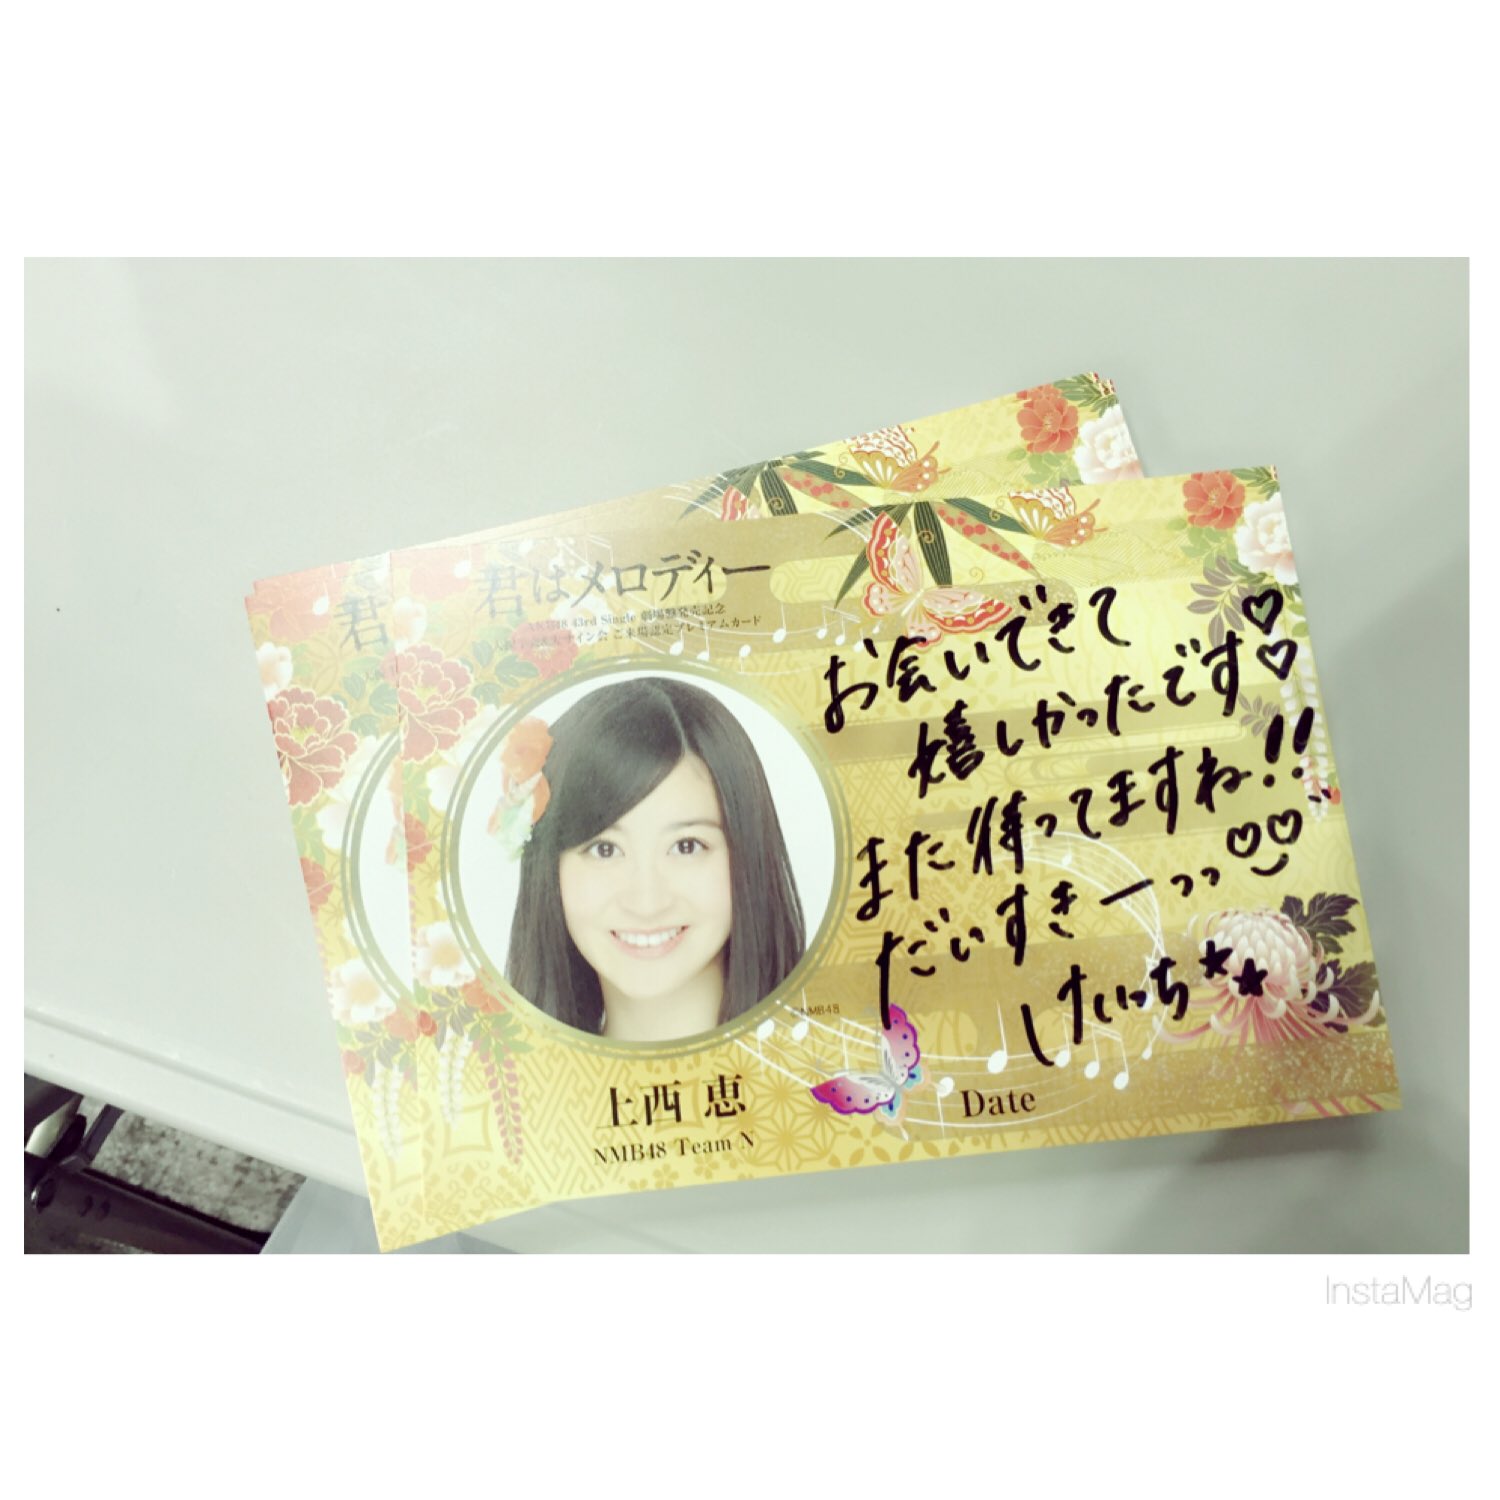 君はメロディー
AKB48 43rd Single 劇場盤発売記念
サイン会 ご来場認定プレミアムカード
君
お会いできて
嬉しかったです♡♡
また待ってますね!!
だいすきーっっ
けいっち★★
©NMB48
上西 恵
NMB48 Team N
Date
InstaMag